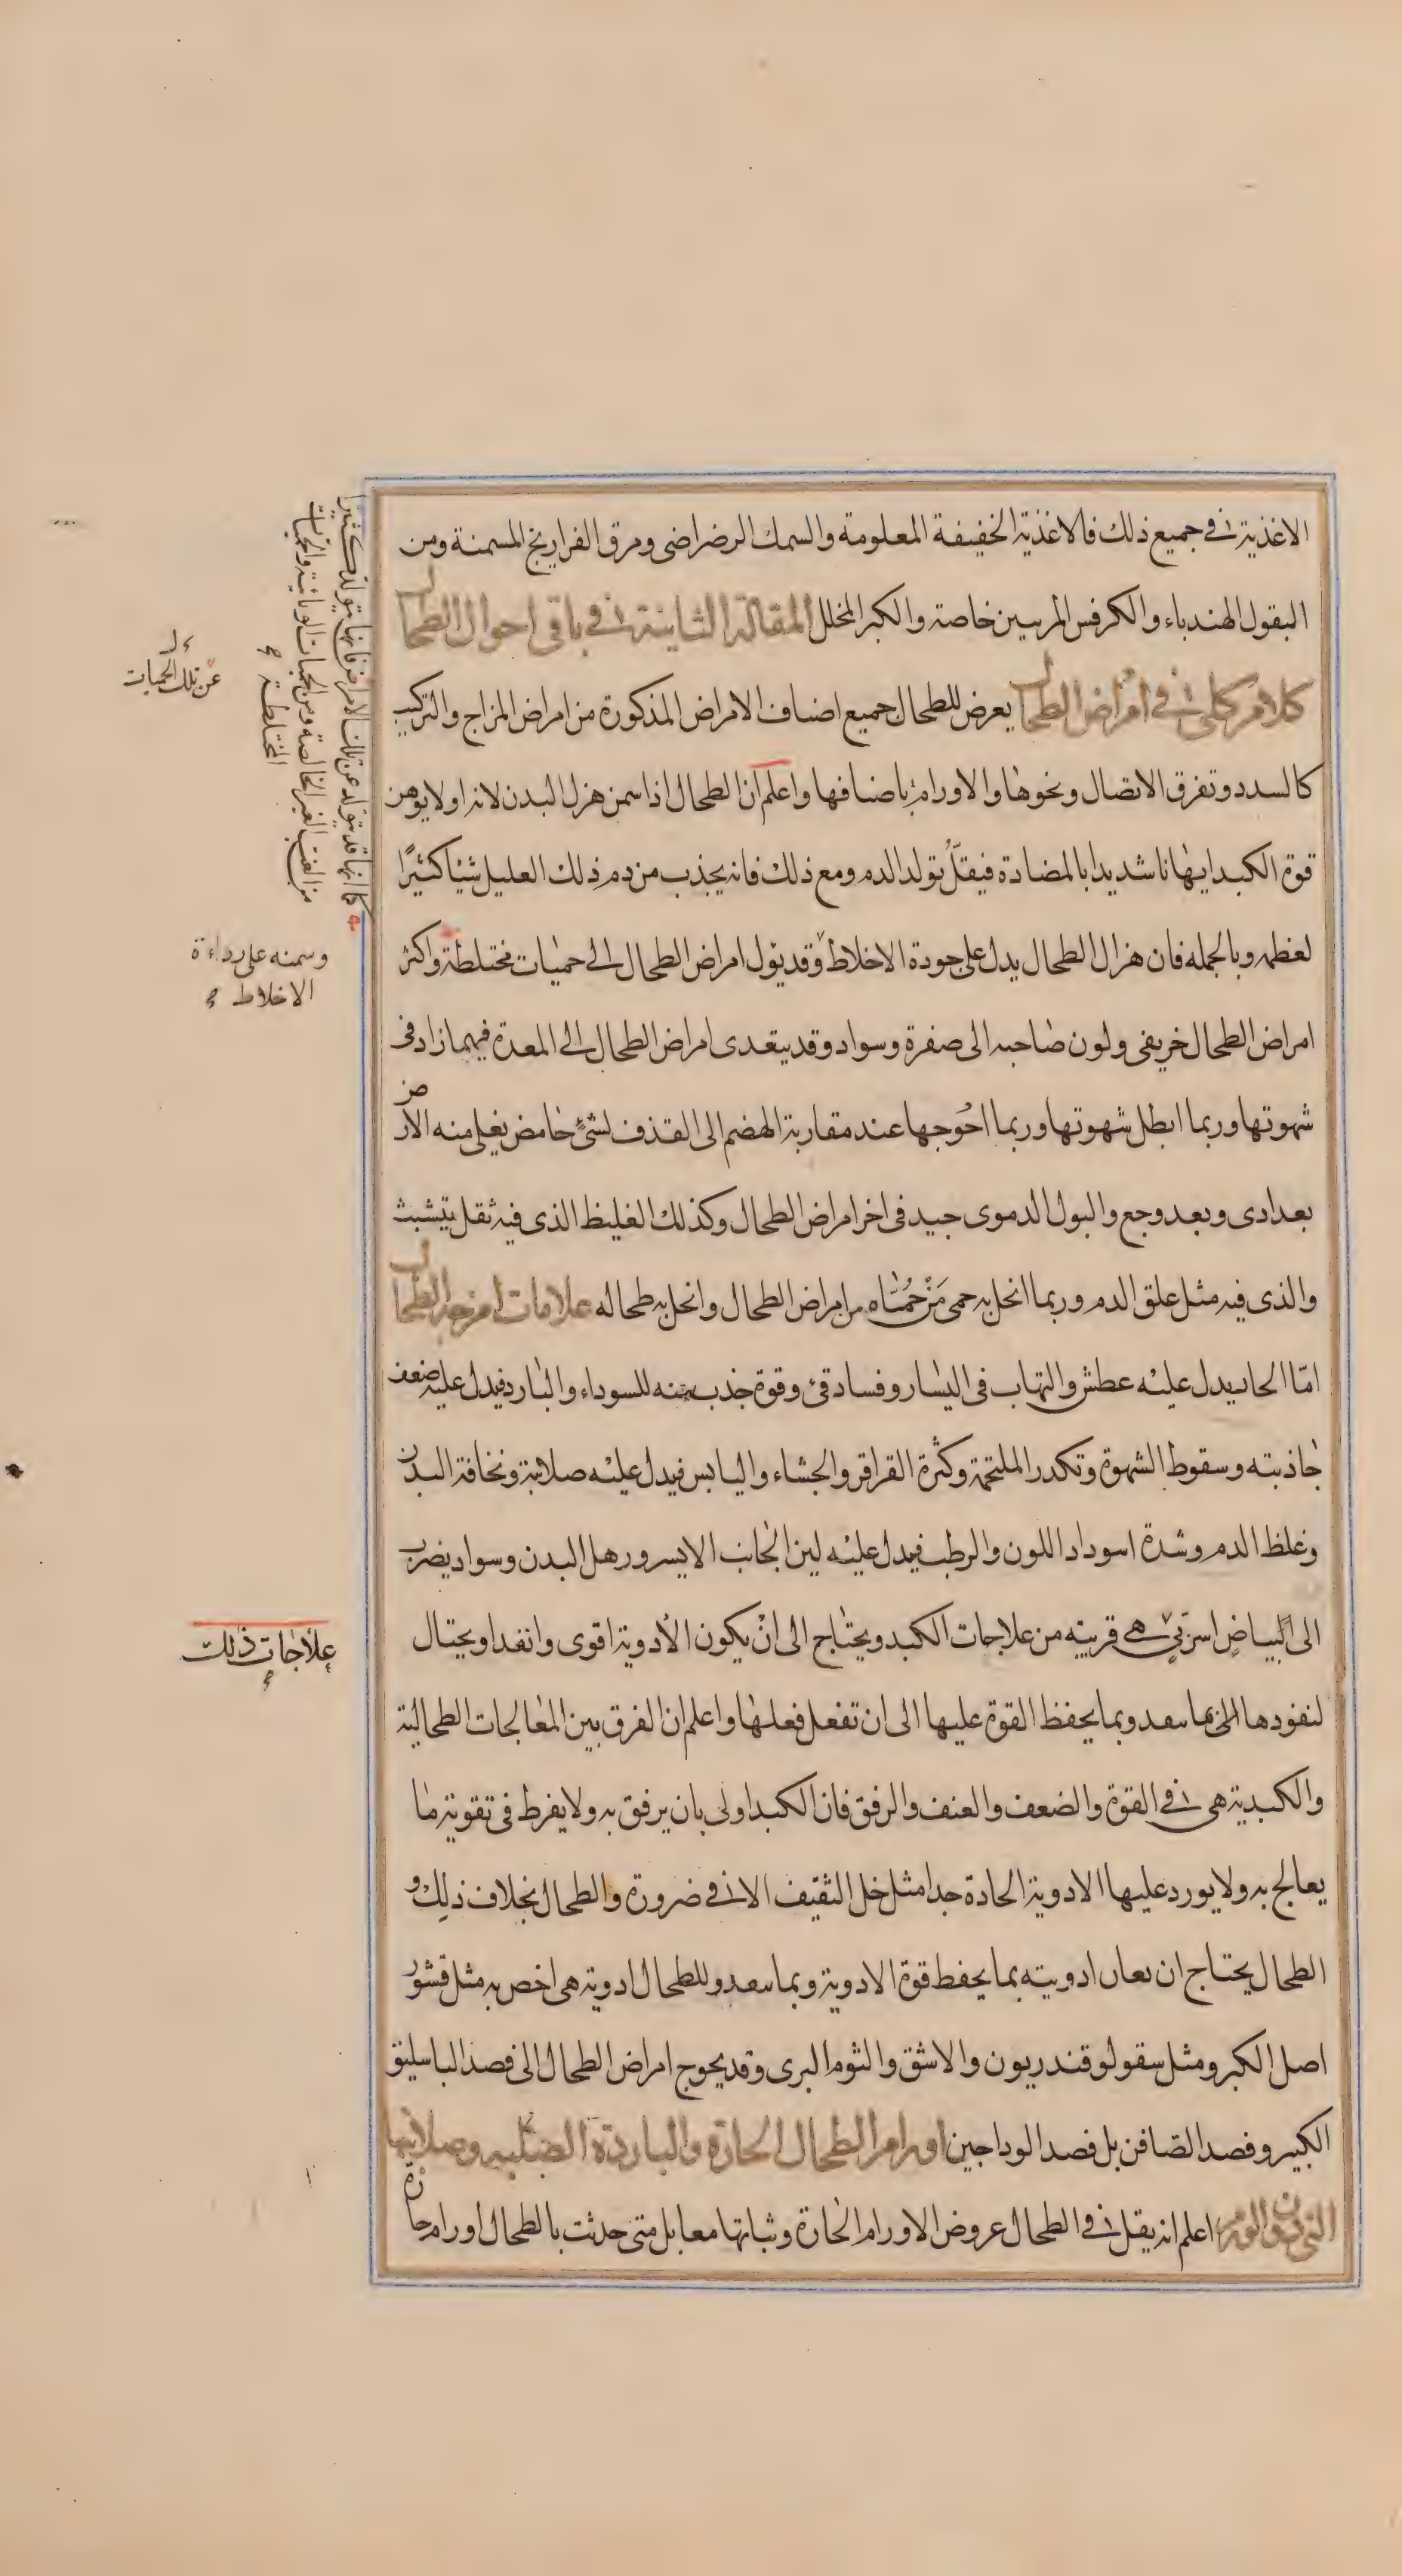 الاغذية في جميع ذلك فالاغذية الخفيفة المعلومة والسمك الرضراضى ومرق الفراريج المسمنة ومن
البقول الهندباء والكرفس المربيين خاصة والكبر المخلل المقالة الثانية في باقى احوال الطحال
كلام كلى في امراض الطحال يعرض للطحال جميع اصناف الامراض المذكورة من امراض المزاج والتركيب
كالسدد وتفرق الاتصال ونحوها والاورام باصنافها واعلم ان الطحال اذا سمن هزل البدن لانه اولا يوهن
قوة الكبد ايهانا شديدا بالمضادة فيقلّ تولد الدم ومع ذلك فانه يجذب من دم ذلك العليل شيا كثيرًا
لعظمه وبالجمله فان هزال الطحال يدل على جودة الاخلاط وقد يؤل امراض الطحال الى حميات مختلطة واكثر
امراض الطحال خريفى ولون صاحبه الى صفرة وسواد وقد يتعدى امراض الطحال الى المعدة فيهما زاد فى
شهوتها وربما ابطل شهوتها وربما احوجها عند مقاربة الهضم الى القذف لشئ حامض يغلى منه الارض
بعد اذى وبعد وجع والبول الدموى جيد فى اخر امراض الطحال وكذلك الغليظ الذى فيه ثقل يتشبث
والذى فيه مثل علق الدم وربما انحل به حمى مَنْ حُمّاه من امراض الطحال وانحل به طحاله علامات امزجة الطحال
امّا الحار يدل عليه عطش والتهاب فى اليسار وفساد قئ وقوة جذب منه للسوداء والبارد فيدل عليه ضعف
جاذبته وسقوط الشهوة وتكدر الملتحمة وكثرة القراقر والجشاء واليابس فيدل عليه صلابة ونحافة البدن
وغلظ الدم وشدة اسوداد اللون والرطب فيدل عليه لين الجانب الايسر ورهل البدن وسواد يضرب
الى البياض اسربى هى قريبه من علاجات الكبد ويحتاج الى انْ يكون الأدوية اقوى وانفذ او يحتال
لنفوذها الى بما سعد وبما يحفظ القوة عليها الى ان تفعل فعلها واعلم ان الفرق بين المعالجات الطحالية
والكبدية هى في القوة والضعف والعنف والرفق فان الكبد اولى بان يرفق به ولا يفرط فى تقوية ما
يعالج به ولا يورد عليها الادوية الحادة جدا مثل خل الثقيف الا في ضرورة والطحال بخلاف ذلك و
الطحال يحتاج ان يعان ادويته بما يحفظ قوة الادوية وبما سعد وللطحال ادوية هى اخص به مثل قشور
اصل الكبر ومثل سقولوقندريون والاشق والثوم البرى وقد يحوج امراض الطحال الى فصد الباسليق
الكبير وفصد الصافن بل فصد الوداجين اورام الطحال الحارة والباردة الصلبه وصلابتها
التى دون الورم اعلم انه يقل في الطحال عروض الاورام الحارة وثباتها معا بل متى حدثت بالطحال اورام حارة
كما انها قد يتولد عن تلك الامراض فانها يتولد كثيرا
من الغب الغير الخالصة ومن الحميات الوبائية والحميات
المختلطة
عن تلك الحميات
وسمنه على رداءة
الاخلاط
علاجات ذلك